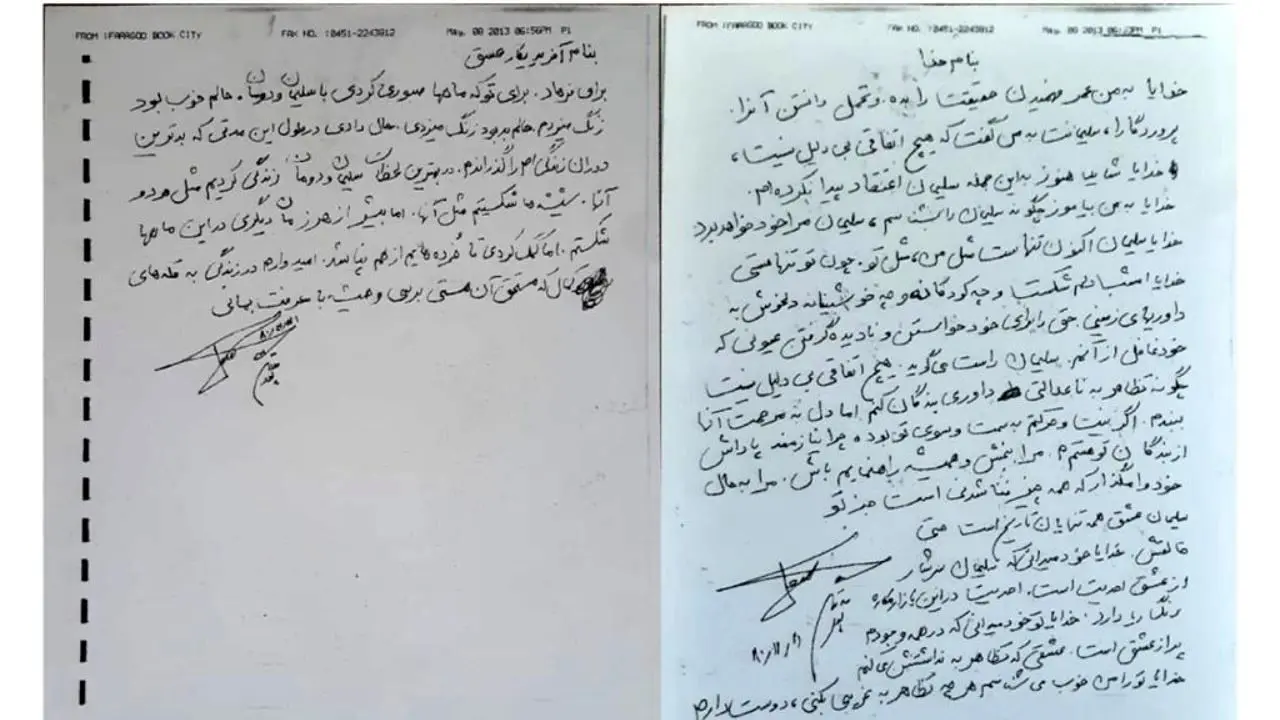 FROM :FARAGOO BOOK CITY FAX NO. :0451-2243912 May. 08 2013 06:56PM P1
بنام آفریدگار عشق
برای فرهاد. برای تو که ماهها صبوری کردی با سلیمان و دومان. حالم خوب بود
زنگ میزدم. حالم بد بود زنگ میزدی. حال دادی در طول این مدتی که بدترین
دوران زندگی ام را گذراندم. در بهترین لحظات سلیمان و دومان زندگی کردیم مثل هر دو
آنها. ما شکستیم مثل آنها. اما بیشتر از هر زمان دیگری در این ماهها
شکستم. اما کمک کردی تا خرده هایم از هم نپاشد. امیدوارم در زندگی به قله های
کمال که مستحق آن هستی برسی و همیشه با معرفت بمانی
FROM :FARAGOO BOOK CITY FAX NO. :0451-2243912 May. 08 2013 06:23PM P1
بنام خدا
خدایا به من عمر فهمیدن حقیقت را بده. و تحمل دانستن آنرا.
پروردگارا، سلیمانت به من گفت که هیچ اتفاقی بی دلیل نیست،
خدایا شاید هنوز به این جمله سلیمان اعتقاد پیدا نکرده ام.
خدایا به من بیاموز چگونه سلیمان را بشناسم، سلیمان مرا خود خواهد برد
خدایا سلیمان اکنون تنهاست مثل من، مثل تو. چون تو تنها هستی
خدایا دلم شکست و چه کودکانه و چه خوشبینانه دلخوش به
داوریهای زمینی حق را برای خود خواستن و نادیده گرفتن عیوبی که
خود غافل از آنم. سلیمان راست می گوید. هیچ اتفاقی بی دلیل نیست
چگونه تظاهر به ناعدالتی داوری بندگان کنم اما دل به مرحمت آنها
ببندم. اگر نیت و حرکتم به سمت و سوی تو بوده چرا نیازمند پاداش
از بندگان تو هستم. مرا ببخش و همیشه راهنمایم باش. مرا به حال
خود وامگذار که همه چیز فنا شدنی است جز تو
سلیمان عشق همه تنهایان تاریخ است حتی
خالقش. خدایا خود میدانی که سلیمان سرشار
از عشق احدیت است. احدیت در این بازار مکاره
رنگ ریا دارد. خدایا تو خود میدانی که در همه وجودم
پر از عشق است. عشقی که تظاهر به نداشتنش می کنم
خدایا تو را من خوب می شناسم هر چه تظاهر به بکنی، دوستت دارم